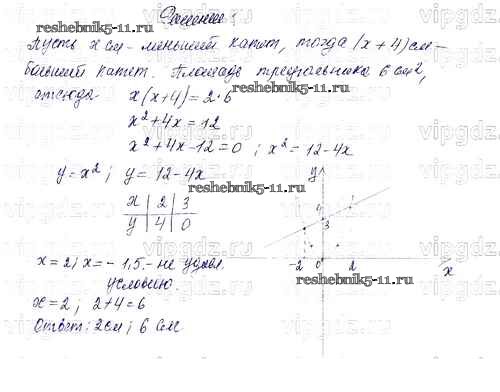 Решение:
reshebnik5-11.ru
Пусть x см - меньший катет, тогда (x + 4) см -
больший катет. Площадь треугольника 6 см²,
отсюда x(x+4) = 2·6
reshebnik5-11.ru
x² + 4x = 12
x² + 4x - 12 = 0 ; x² = 12 - 4x
y = x² ; y = 12 - 4x
reshebnik5-11.ru
x | 2 | 3
y | 4 | 0
y
4
3
-2 0 2 x
x = 2; x = - 1,5 - не удовл.
условию.
reshebnik5-11.ru
x = 2 ; 2+4 = 6
Ответ: 2 см ; 6 см
vipgdz.ru